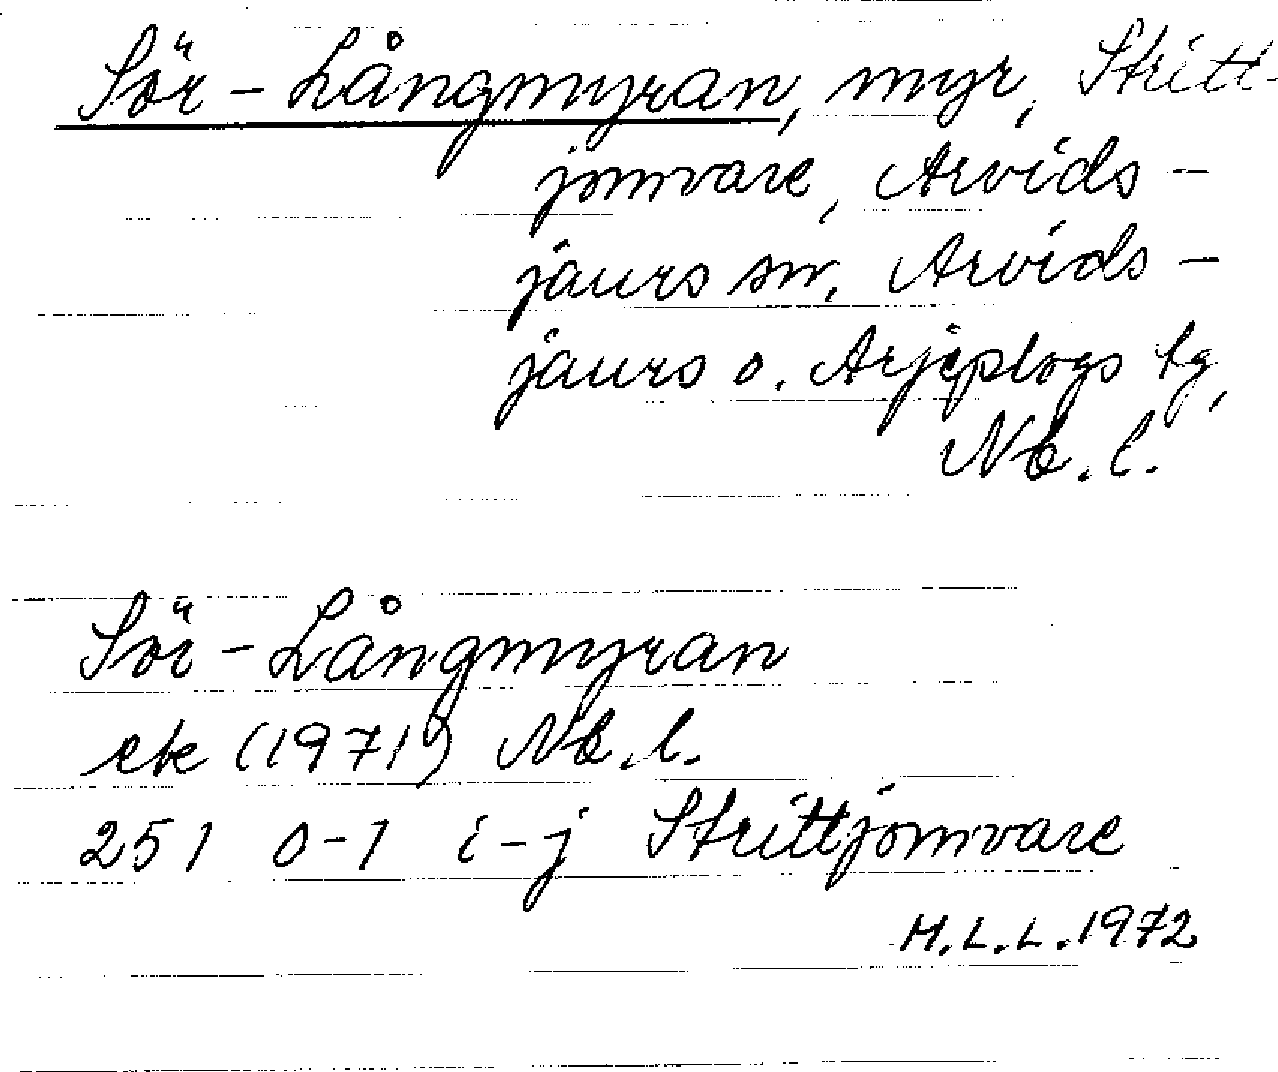 Sör-Långmyran, myr, Stritt-
jomvare, Arvids-
jaurs sn, Arvids-
jaurs o. Arjeplogs tg,
Nb.l.
Sör-Långmyran
ek (1971) Nb.l.
251 0-1 i-j Strittjomvare
H.L.L. 1972